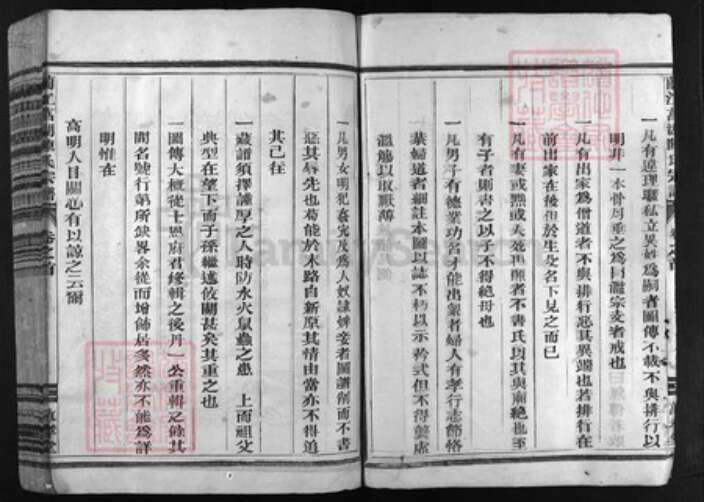 一凡有違理縱私立異姓爲嗣者圖傳不載不與排行以
明非一本骨肉垂之爲日亂宗支者戒也
一凡有出家爲僧道者不與排行惡其異端也若排行在
前出家在後但於生父名下見之而已
一凡有妻或黜或夫死再醮者不書氏以其與廟絶也至
有子者則書之以子不得絶母也
一凡男子有德業功名才能出衆者婦人有孝行志節恪
葉婦道者細註本圖以誌不朽以示矜式但不得龔虛
濫觴以取厭薄
一凡男女明犯姦宄及爲人奴隸婢妾者圖譜削而不書
惡其辱先也苟能於末路自新原其情由當亦不得追
其已往
一藏譜須擇謹厚之人時防水火鼠蟲之患 上而祖父
典型在望下而子孫繼述攸關甚矣其重之也
一圖傳大概從士恩府君修輯之後丹一公重輯之餘其
間名號行第所缺畧余從而增飾居多然亦不能爲詳
明惟在
高明人目關心有以諒之云爾
宗譜
卷之首